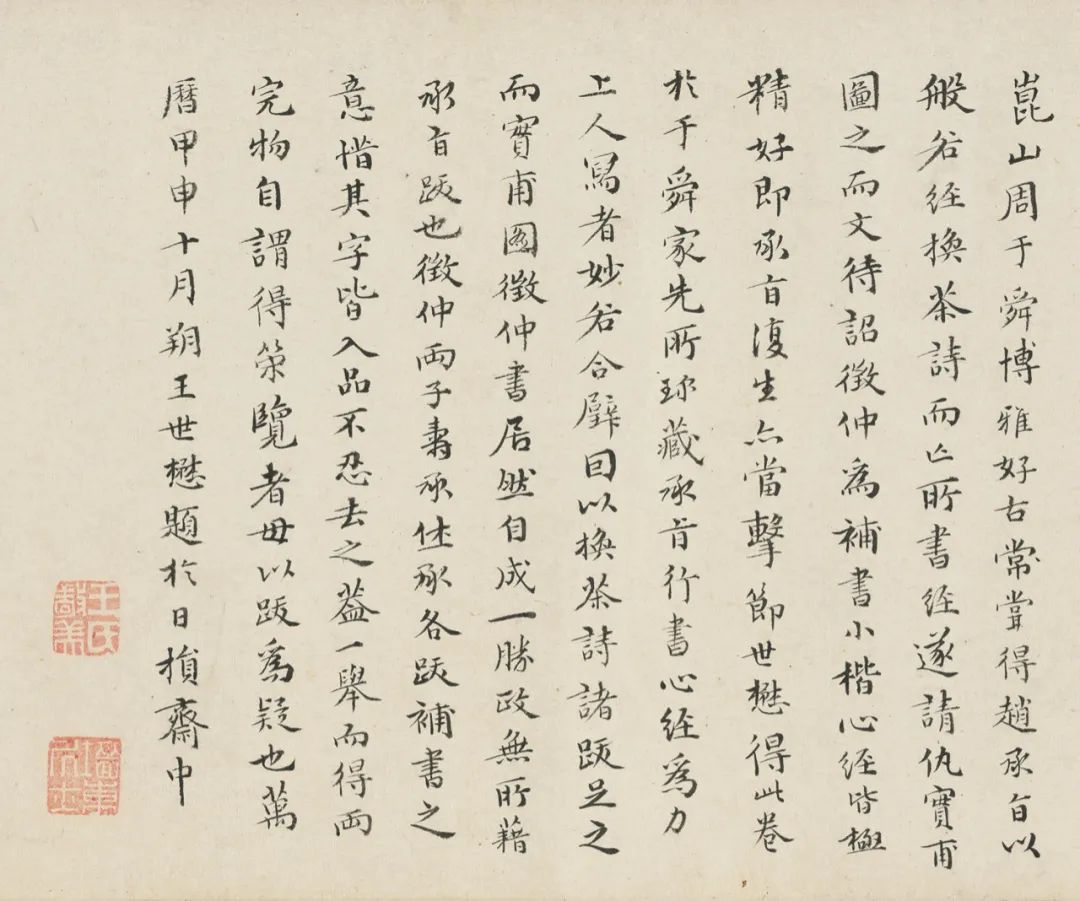 崑山周于舜博雅好古常嘗得趙承旨以
般若經換茶詩而亡所書經遂請仇實甫
圖之而文待詔徵仲為補書小楷心經皆極
精好即承旨復生亦當擊節世懋得此卷
於于舜家先所珎藏承旨行書心經為力
上人寫者妙若合璧因以換茶詩諸跋足之
而實甫圖徵仲書居然自成一勝政無所藉
承旨跋也徵仲兩子壽承休承各跋補書之
意惜其字皆入品不忍去之蓋一舉而得兩
完物自謂得策覽者毋以跋為疑也萬
曆甲申十月朔王世懋題於日損齋中
王氏敬美